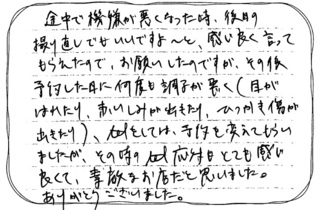 途中で機嫌が悪くなった時、後日の
撮り直しでもいいですよ〜と、感じ良く言って
もらえたので、お願いしたのですが、その後
予約した日に何度も調子が悪く(目が
はれたり、赤いしみが出きたり、ひっかき傷が
出きたり)、としては、予約を変えてもらい
ましたが、その時の 応対もとても感じ
良くて、素敵なお店だと思いました。
ありがとうございました。